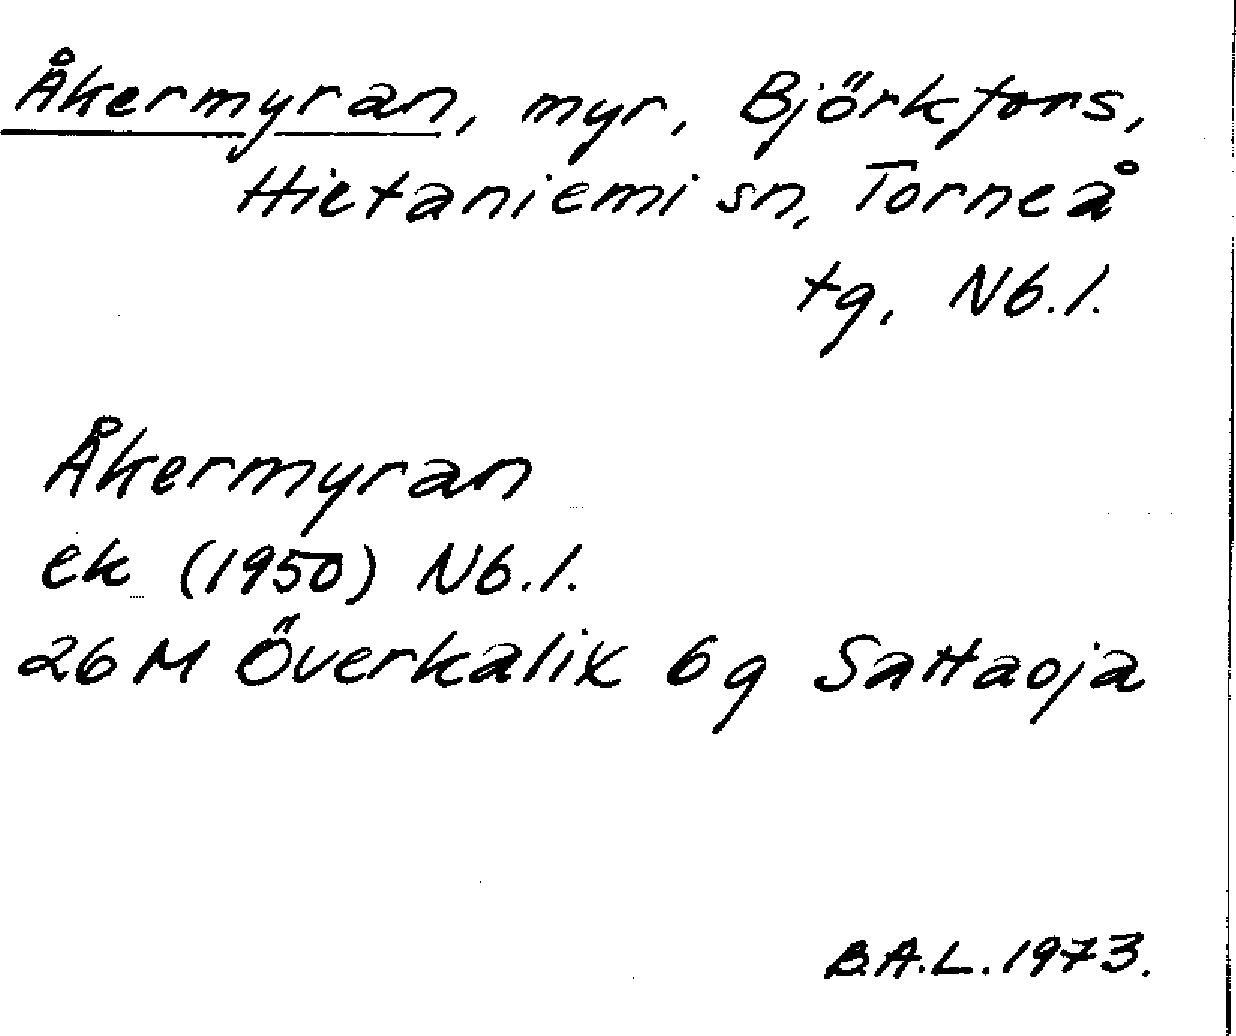 Åkermyran, myr, Björkfors,
Hietaniemi sn, Torneå
tg, Nb.l.
Åkermyran
ek (1950) Nb.l.
26 M Överkalix 6g Sattaoja
B.A.L. 1973.